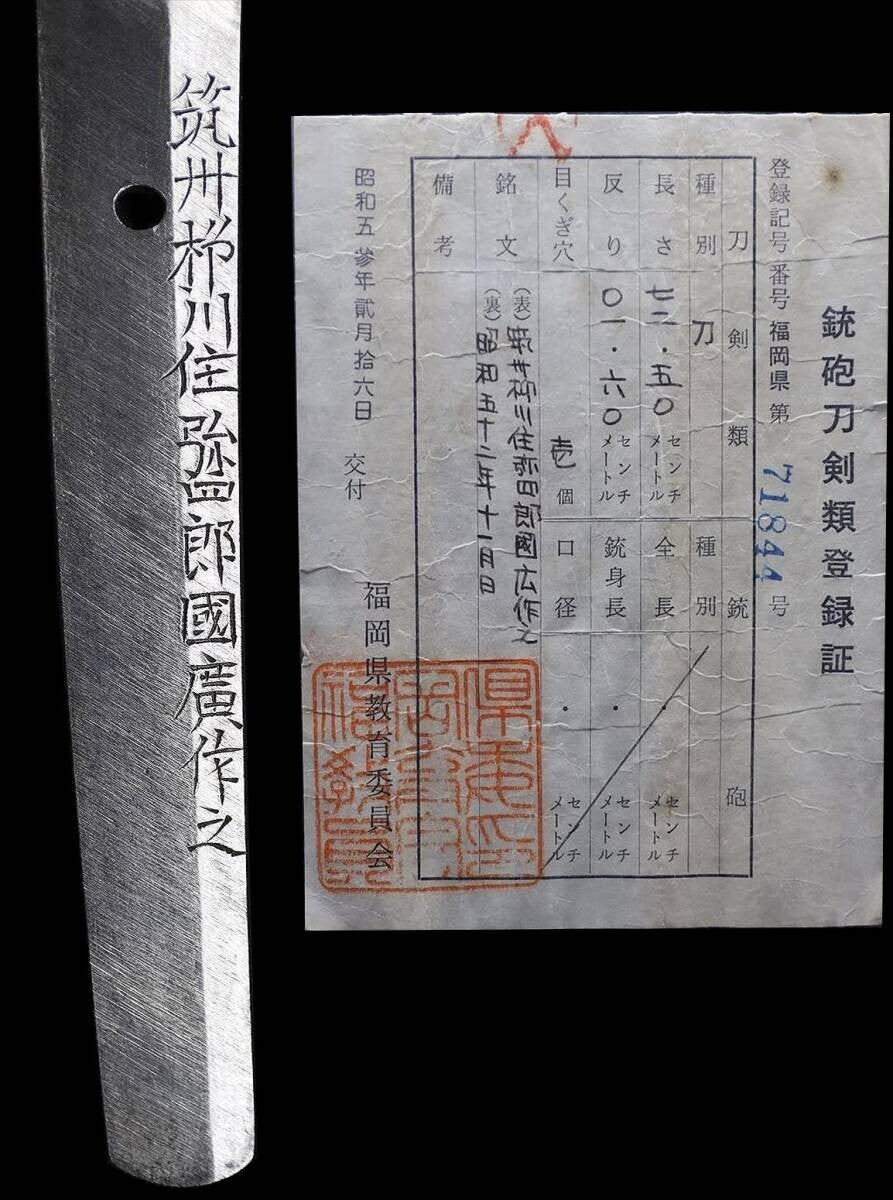 筑州栁川住弥四郎國廣作之
銃砲刀剣類登録証
登録記号番号 福岡県 第 71844 号
刀剣類 銃砲
種別 刀 種別
長さ 七二・五〇 センチメートル 全長 ・ センチメートル
反り 〇一・六〇 センチメートル 銃身長 ・ センチメートル
目くぎ穴 壱個 口径 ・ センチメートル
銘文 (表)筑州柳川住弥四郎國広作之
(裏)昭和五十二年十一月日
備考
昭和五参年貳月拾六日
交付
福岡県教育委員会